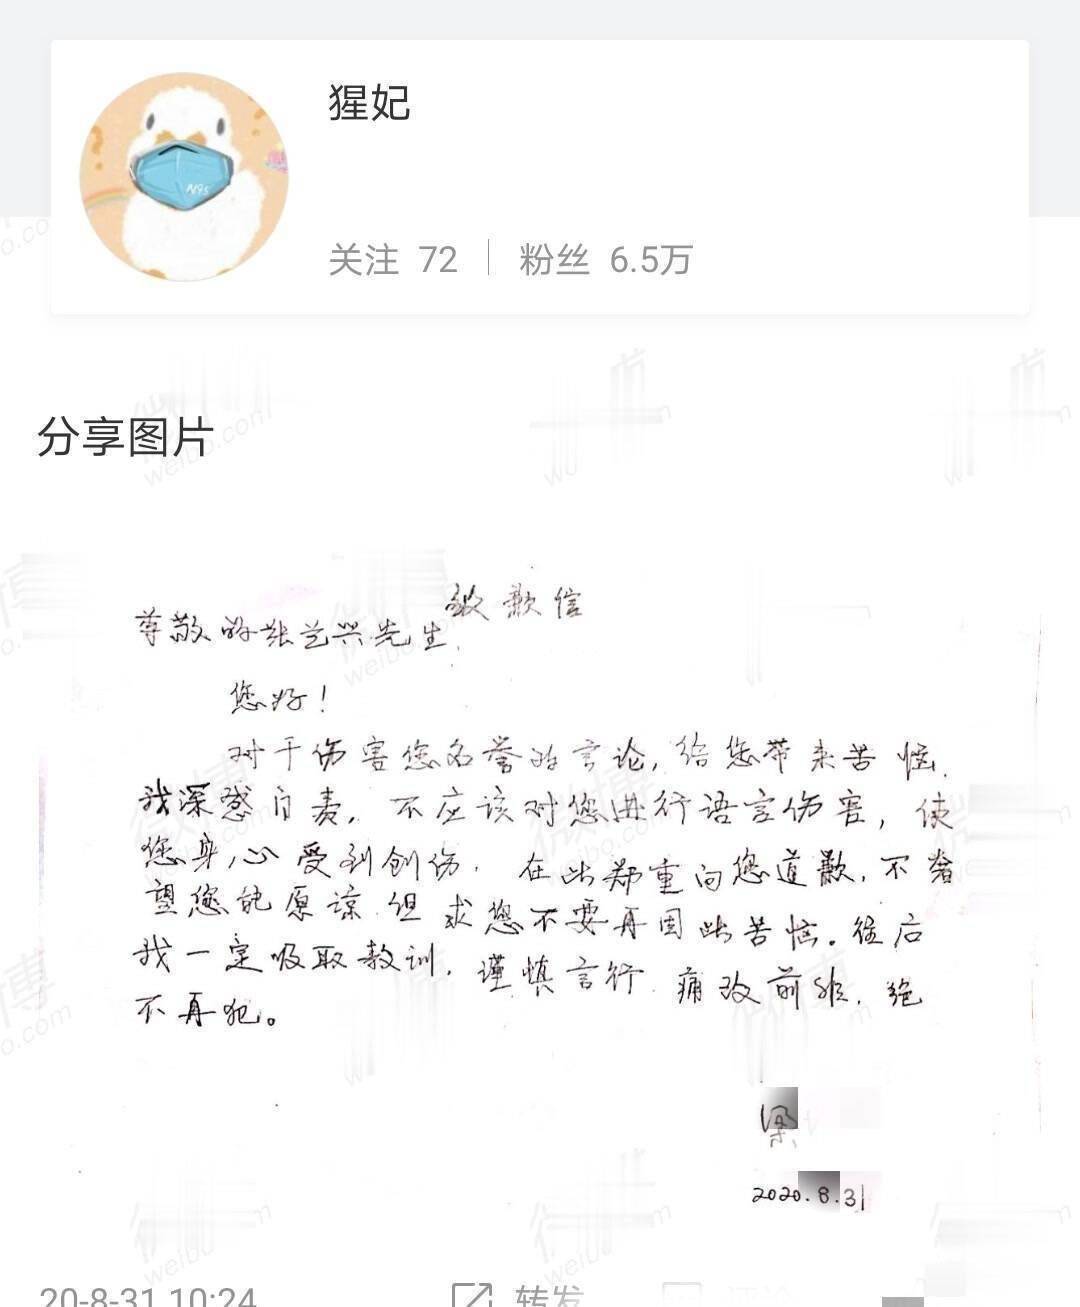 猩妃
N95
关注 72 粉丝 6.5万
分享图片
致歉信
尊敬的张艺兴先生.
您好!
对于伤害您名誉的言论,给您带来苦恼.
我深感自责. 不应该对您进行语言伤害,使
您身心受到创伤. 在此郑重向您道歉.不奢
望您能原谅 但求您不要再因此苦恼。往后
我一定吸取教训. 谨慎言行 痛改前非. 绝
不再犯。
梁
2020.8.31
20-8-31 10:24 转发 评论